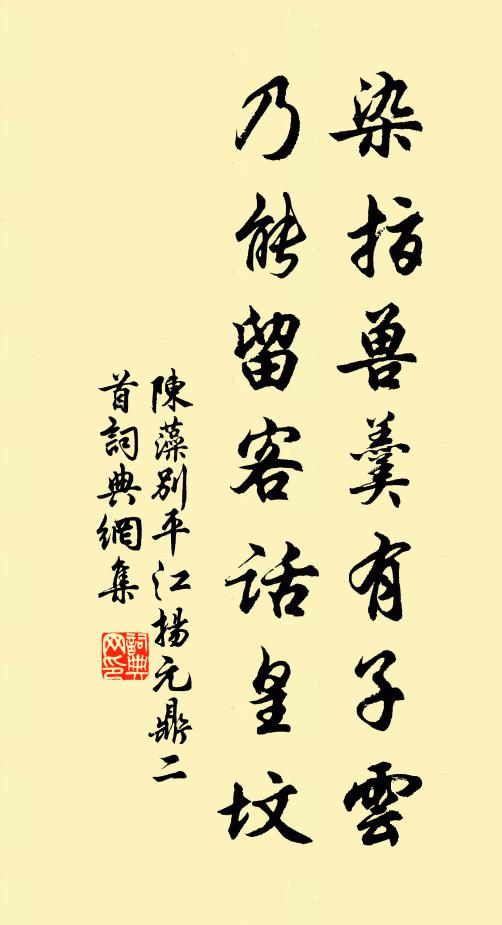 染指兽羹有子雲
乃能留客话皇坟
陳藻别平江揚元鼎二
首詞典網集
詞典
网印